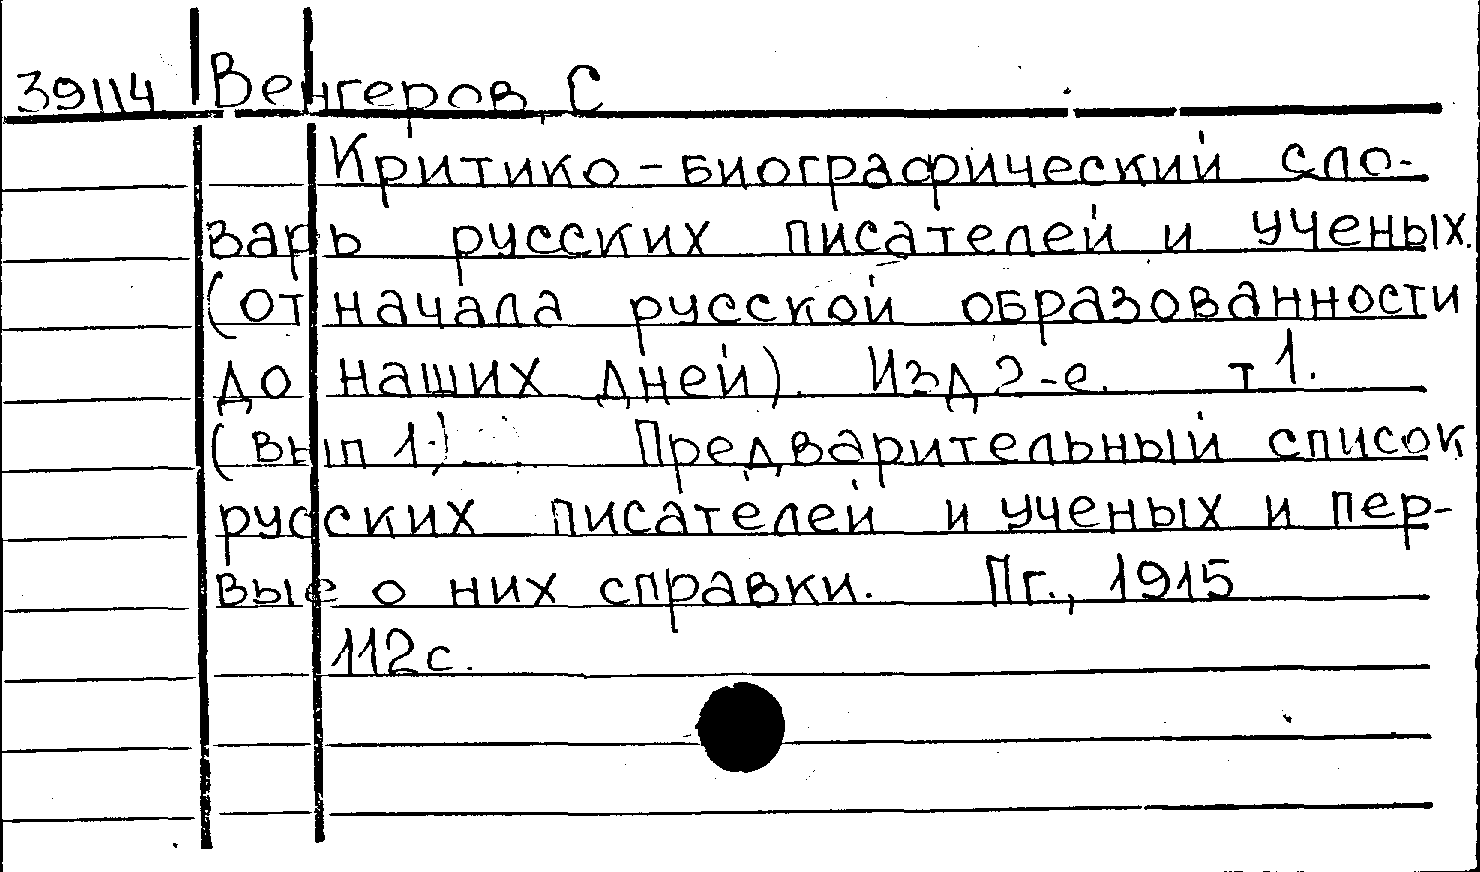 39114 Венгеров, С
Критико-биографический сло-
варь русских писателей и ученых.
(от начала русской образованности
до наших дней). Изд 2-е. т 1.
(вып 1.) Предварительный список
русских писателей и ученых и пер-
вые о них справки. Пг., 1915
112с.